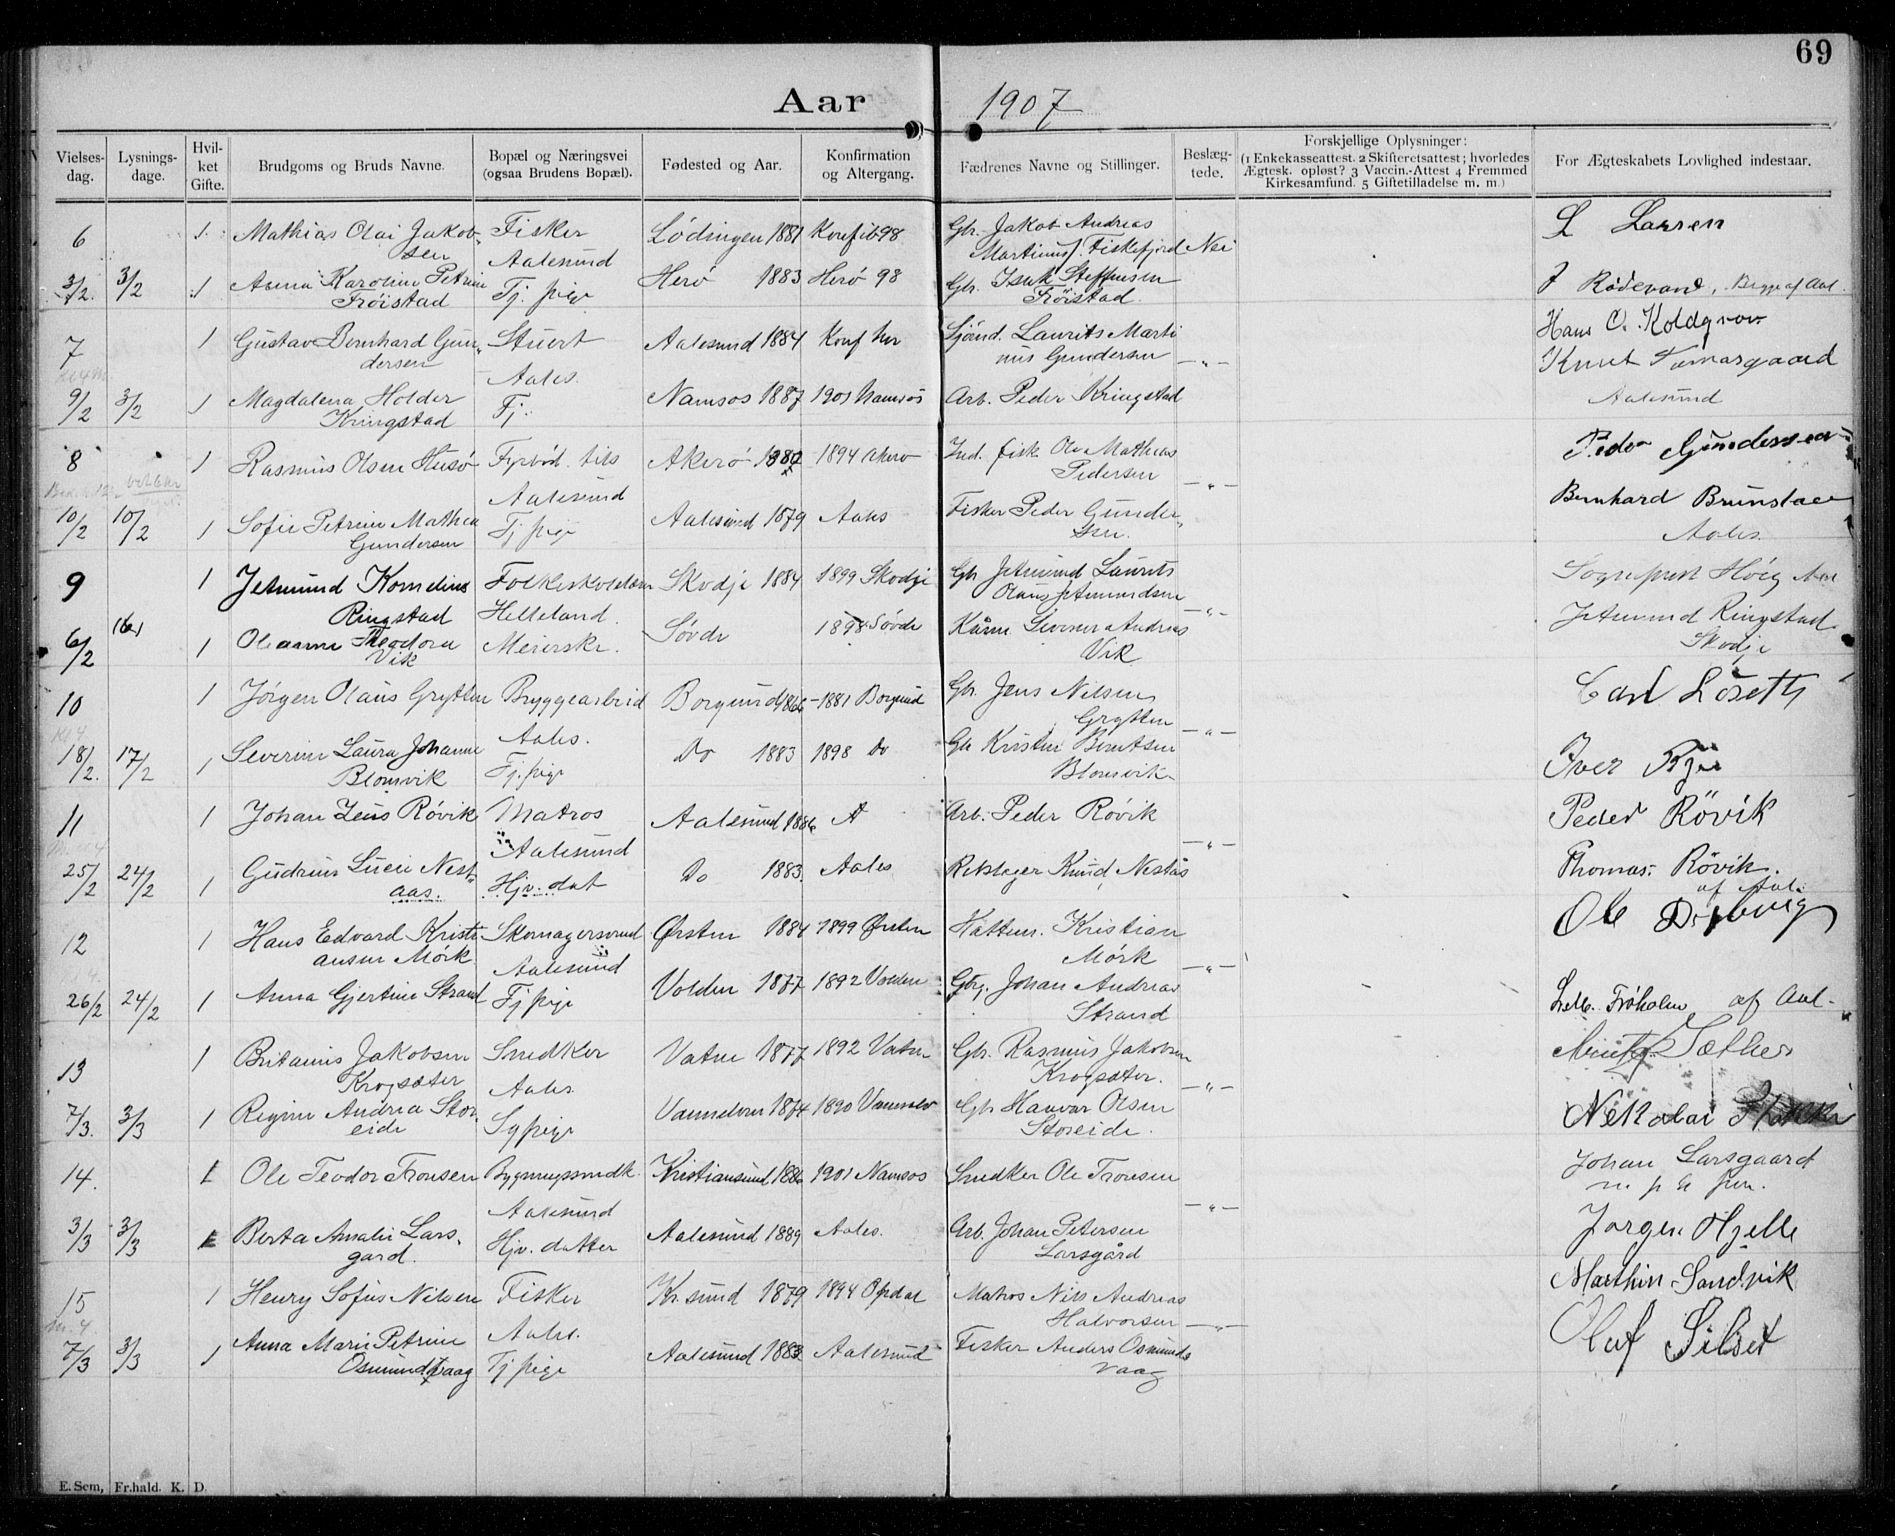 69
Aar 1907
Vielses-dag. Lysnings-dage. Hvil-ket Gifte. Brudgoms og Bruds Navne. Bopæl og Næringsvei (ogsaa Brudens Bopæl). Fødested og Aar. Konfirmation og Altergang. Fædrenes Navne og Stillinger. Beslæg-tede. Forskjellige Oplysninger: (1 Enkekasseattest. 2 Skifteretsattest; hvorledes Ægtesk. opløst? 3 Vaccin.-Attest 4 Fremmed Kirkesamfund. 5 Giftetilladelse m. m.) For Ægteskabets Lovlighed indestaar.
6 1 Mathias Olai Jakob- Fisker Lødingen 1881 Konf ib 98 Gbr. Jakob Andreas L Larsen
sen Aalesund Martinus Fiskefjord Nei
3/2. 3/2 1 Anna Karoline Petrine Tj. pige Herø 1883 Herø 98 Gbr. Isak Steffensen J Rødevand, Begge af Aal.
Frøistad Frøistad.
7 1 Gustav Bernhard Gun- Stuert Aalesund 1884 Konf her Sjømd. Laurits Marti Hans O. Koldgrov
dersen Aales. nus Gundersen —„— Knut
9/2 3/2 1 Magdalena Holder Tj. Namsos 1887 1901 Namsos Arb. Peder Kringstad Aalesund
Kringstad
8 1 Rasmus Olsen Husø Fyrbød. tils Akerø 1882 1894 Akerø Ind. fisk Ole Mathias Peder Gundersen
Aalesund Pedersen —„— Bernhard
10/2 10/2 1 Sofie Petrine Mathea Tj. pige Aalesund 1879 Aales Fisker Peder Gunder- Aales.
Gundersen sen.
9 1 Jetmund Kornelius Folkeskolelærer Skodje 1884 1899 Skodje Gb. Jetmund Laurits Sogneprest Høeg Aal
Ringstad Helleland. Olaus Jetmundsen —„—
6/2 1 Oleanna Theodora Meierske. Søvde 1898 Søvde Kårm. Severin Andreas Jetmund Ringstad
Vik Vik Skodje
10 1 Jørgen Olaus Grytten Bryggearbeid Borgund 1866 1881 Borgund Gb. Jens Nilsen Carl Løseth
Aales. Grytten —„—
18/2. 17/2 1 Severine Laura Johanne Tj. pige Do 1883 1898 Do Gb Kristen Berntsen Iver
Blomvik Blomvik
11 1 Johan Zeus Røvik Matros Aalesund 1886 A Arb. Peder Røvik Peder Røvik
Aalesund —„—
25/2 24/2 1 Gudrun Lucie Nest- Hjv. dat Do 1883. Aales Rebslager Knud Nestås Thomas. Røvik.
aas. af Aal.
12 1 Hans Edvard Kristi Skomagersvend Ørsten 1884 1899 Ørsten Hattem. Kristian Ole
ansen Mørk Aalesund Mørk —„—
26/2 24/2 1 Anna Gjertine Strand Tj. pige Volden 1877 1892 Volden Gbrg. Johan Andreas Frøholm af Aal.
Strand
13 1 Britanus Jakobsen Snedker Vatne 1877 1892 Vatne Gbr. Rasmus Jakobsen Sæther
Krogsæter Aales. Krogsæter. —„—
7/3. 3/3 1 Regine Andrea Stor- Sypige Vannelven 1874 1890 Gb Haavar Olsen Nikolai
eide Storeide.
14. 1 Ole Teodor Tronsen Bygningssnedk. Kristiansund 1886 1901 Namsos Snedker Ole Tronsen Johan Larsgaard
Aalesund —„— m p å pen.
3/3 3/3 1 Berta Amalie Lars- Hjv. datter Aalesund 1889 Aales. Arb. Johan Petersen Jørgen Hjelle
gard. Larsgård
15 1 Henry Sofus Nilsen Fisker Kr.sund 1879 1894 Opdal Matros Nils Andreas Marthin Sandvik
Aales. Halvorsen —„—
7/3 3/3 1 Anna Marie Petrine Tj pige Aalesund 1883 Aalesund Fisker Anders Osmunds Olaf Silset
Osmundvaag vaag
E. Sem, Fr.hald. K. D.